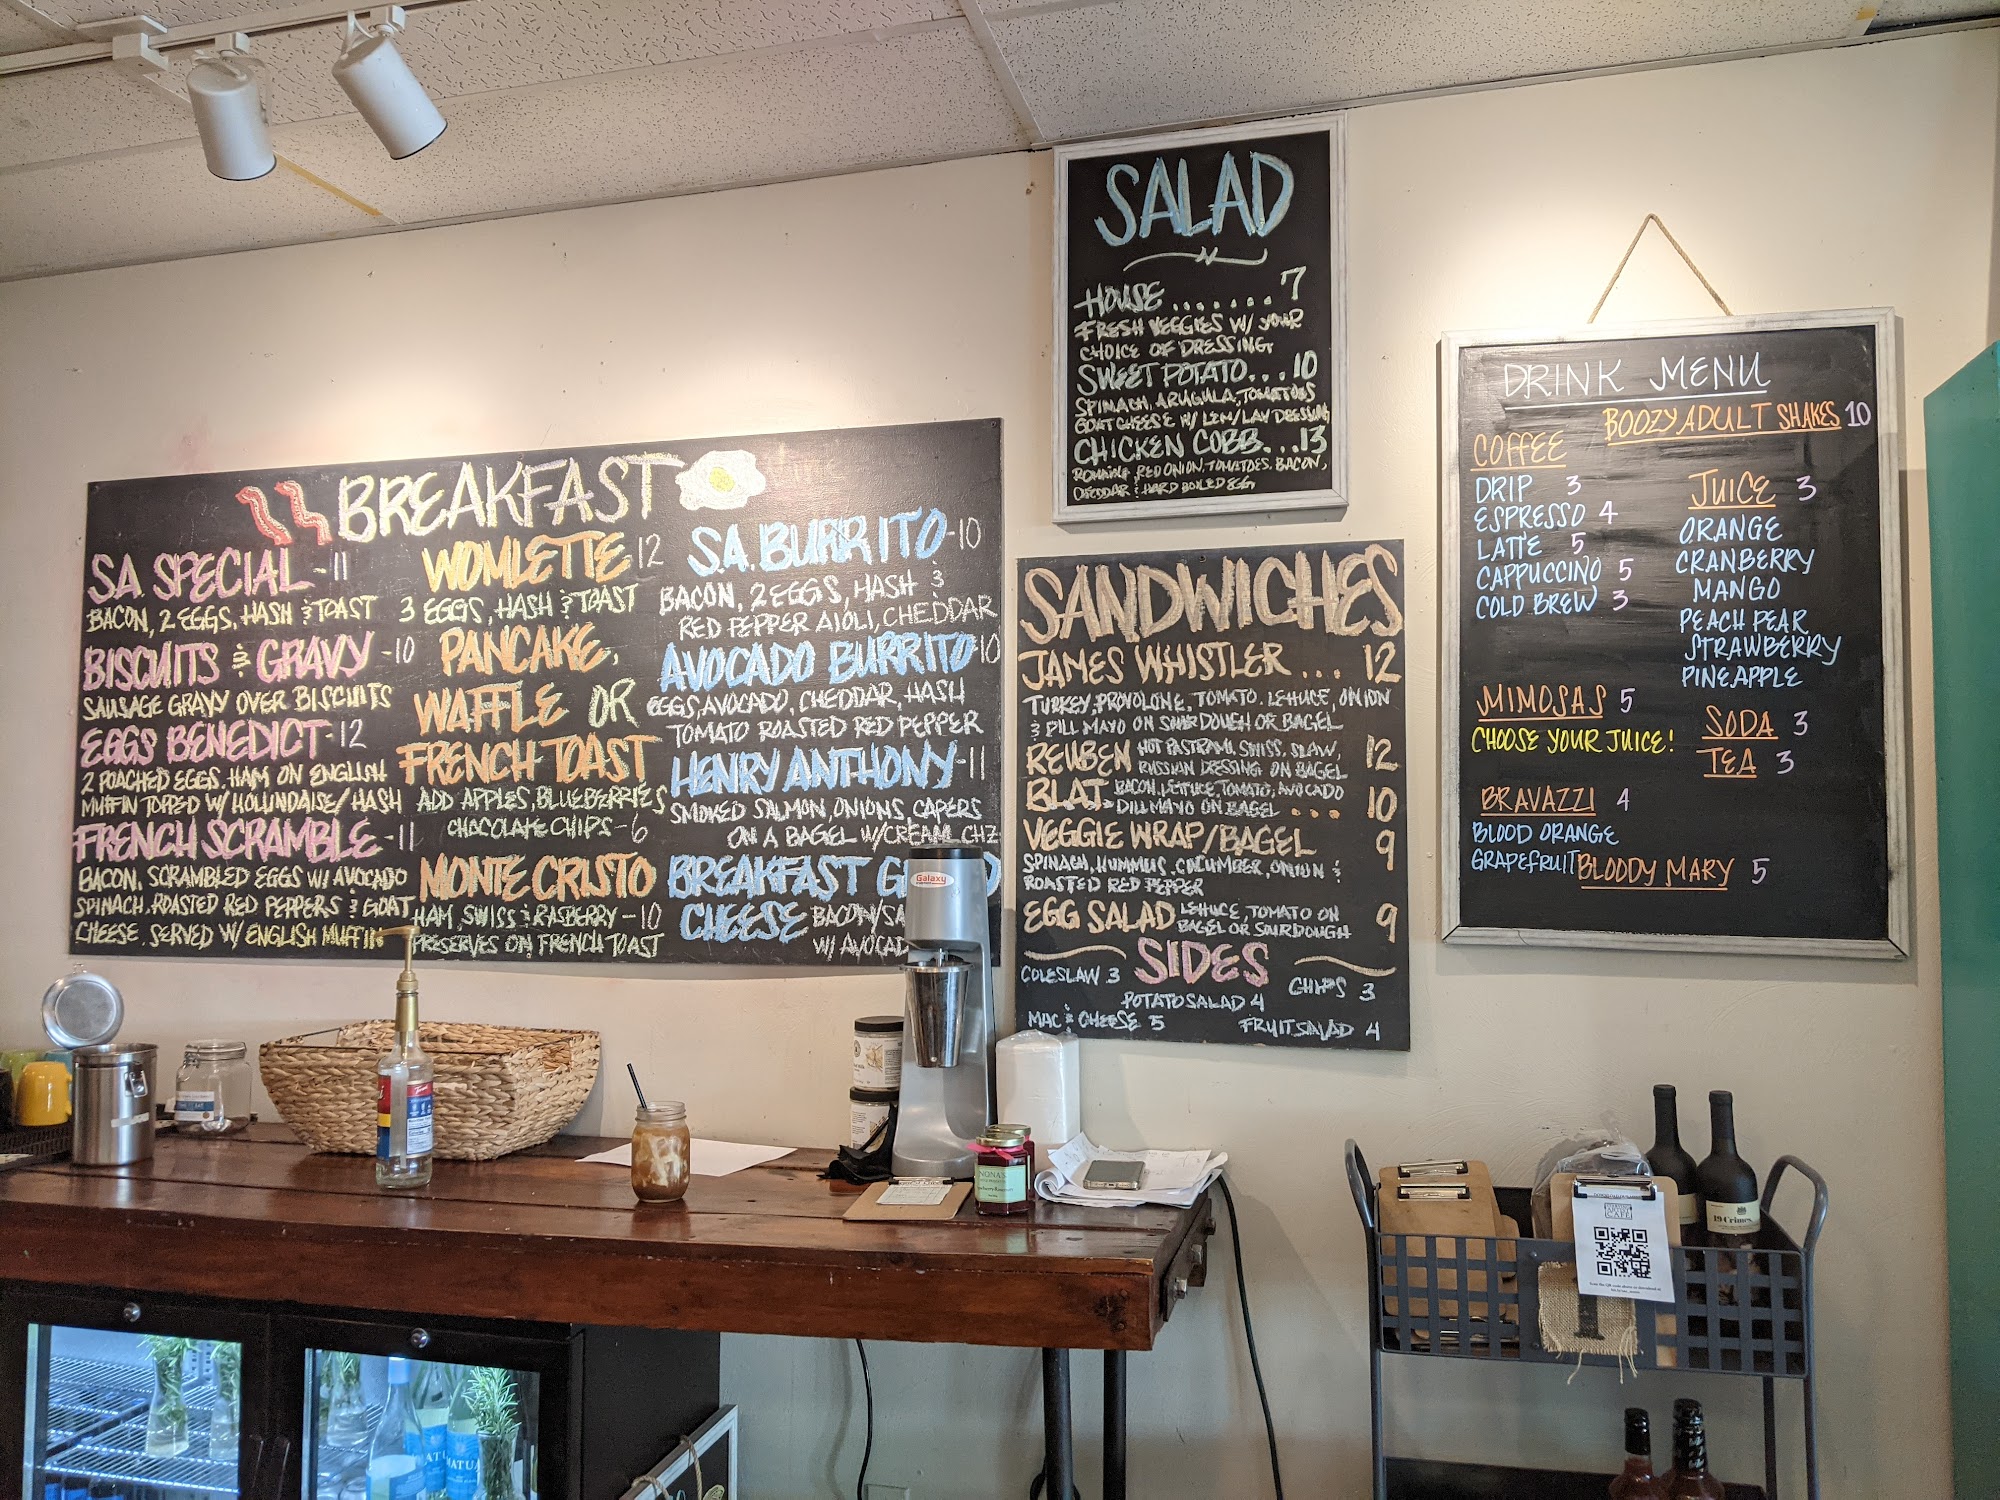 BREAKFAST
S.A. SPECIAL - 11
BACON, 2 EGGS, HASH & TOAST
BISCUITS & GRAVY - 10
SAUSAGE GRAVY OVER BISCUITS
EGGS BENEDICT - 12
2 POACHED EGGS, HAM ON ENGLISH
MUFFIN TOPED W/ HOLLINDAISE/HASH
FRENCH SCRAMBLE - 11
BACON, SCRAMBLED EGGS W/ AVOCADO
SPINACH, ROASTED RED PEPPERS & GOAT
CHEESE. SERVED W/ ENGLISH MUFFIN
WOMLETTE 12
3 EGGS, HASH & TOAST
PANCAKE,
WAFFLE OR
FRENCH TOAST
ADD APPLES, BLUEBERRIES
CHOCOLATE CHIPS - 6
MONTE CRISTO
HAM, SWISS & RASBERRY - 10
PRESERVES ON FRENCH TOAST
S.A. BURRITO - 10
BACON, 2 EGGS, HASH &
RED PEPPER AIOLI, CHEDDAR
AVOCADO BURRITO 10
EGGS, AVOCADO, CHEDDAR, HASH
TOMATO ROASTED RED PEPPER
HENRY ANTHONY - 11
SMOKED SALMON, ONIONS, CAPERS
ON A BAGEL W/ CREAM CHZ
BREAKFAST G
CHEESE BACON/SA
W/ AVOCAD
SALAD
HOUSE ....... 7
FRESH VEGGIES W/ YOUR
CHOICE OF DRESSING
SWEET POTATO... 10
SPINACH, ARUGULA, TOMATOES
GOAT CHEESE W/ LEM/LAV DRESSING
CHICKEN COBB... 13
ROMAINE, RED ONION, TOMATOES, BACON,
CHEDDAR & HARD BOILED EGG
SANDWICHES
JAMES WHISTLER ... 12
TURKEY, PROVOLONE, TOMATO, LETTUCE, ONION
& DILL MAYO ON SOURDOUGH OR BAGEL
REUBEN HOT PASTRAMI, SWISS, SLAW, 12
RUSSIAN DRESSING ON BAGEL
BLAT BACON, LETTUCE, TOMATO, AVOCADO
DILL MAYO ON BAGEL ... 10
VEGGIE WRAP/BAGEL 9
SPINACH, HUMMUS, CUCUMBER, ONION &
ROASTED RED PEPPER
EGG SALAD LETTUCE, TOMATO ON 9
BAGEL OR SOURDOUGH
SIDES
COLESLAW 3
CHIPS 3
POTATO SALAD 4
MAC & CHEESE 5
FRUIT SALAD 4
DRINK MENU
BOOZY ADULT SHAKES 10
COFFEE
DRIP 3
ESPRESSO 4
LATTE 5
CAPPUCCINO 5
COLD BREW 3
JUICE 3
ORANGE
CRANBERRY
MANGO
PEACH PEAR
STRAWBERRY
PINEAPPLE
MIMOSAS 5
CHOOSE YOUR JUICE!
SODA 3
TEA 3
BRAVAZZI 4
BLOOD ORANGE
GRAPEFRUIT
BLOODY MARY 5
Galaxy
NONA'S
19 Crimes
CAFE
MATUA